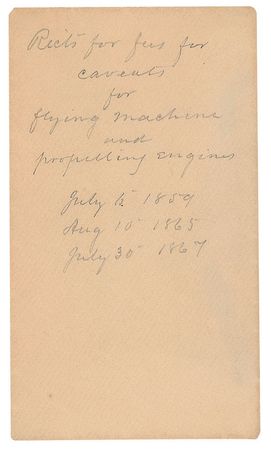 Rects for fees for
caveats
for
flying machine
and
propelling engines
July 5 1859
Aug 10 1865
July 30 1867